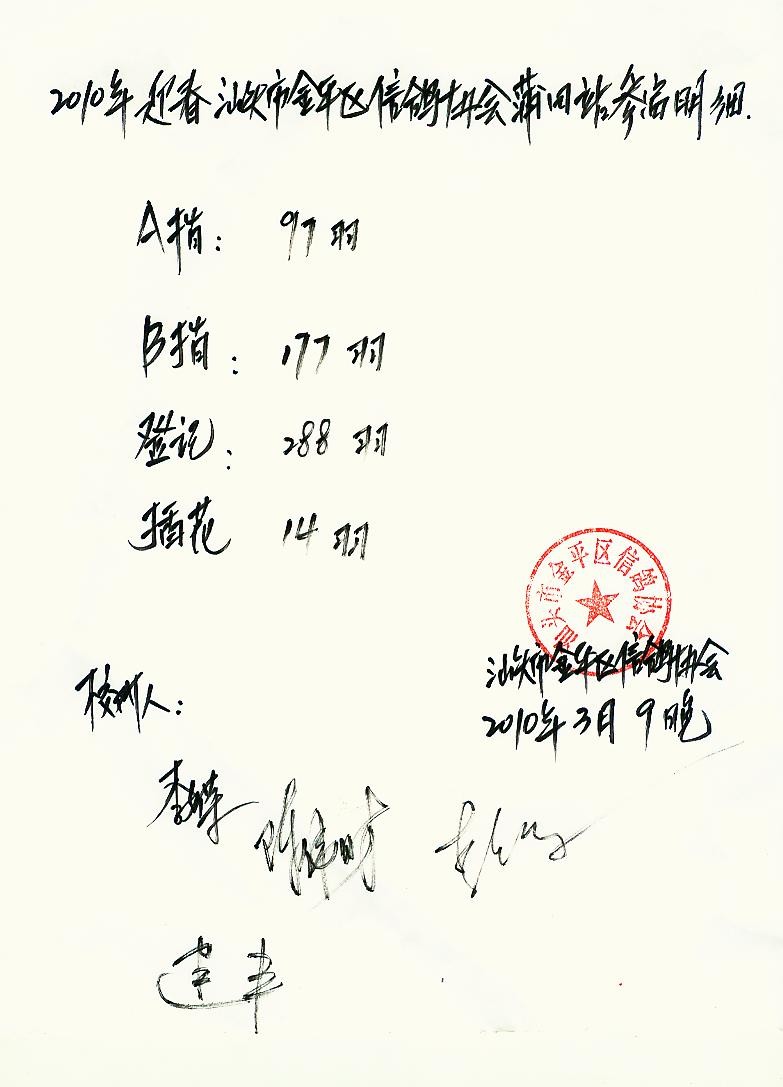 2010年迎春汕头市金平区信鸽协会蒲田站参赛明细.
A指: 97羽
B指: 177羽
登记: 288羽
插花 14羽
汕头市金平区信鸽协会
汕头市金平区信鸽协会
2010年3月9晚
校对人: